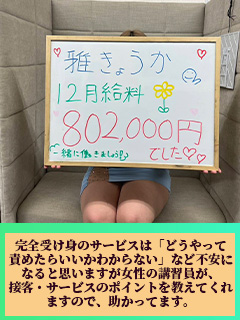 雅きょうか
12月給料
802,000円
でした♡♡
一緒に働きましょう
完全受け身のサービスは「どうやって
責めたらいいかわからない」など不安に
なると思いますが女性の講習員が、
接客・サービスのポイントを教えてくれ
ますので、助かってます。